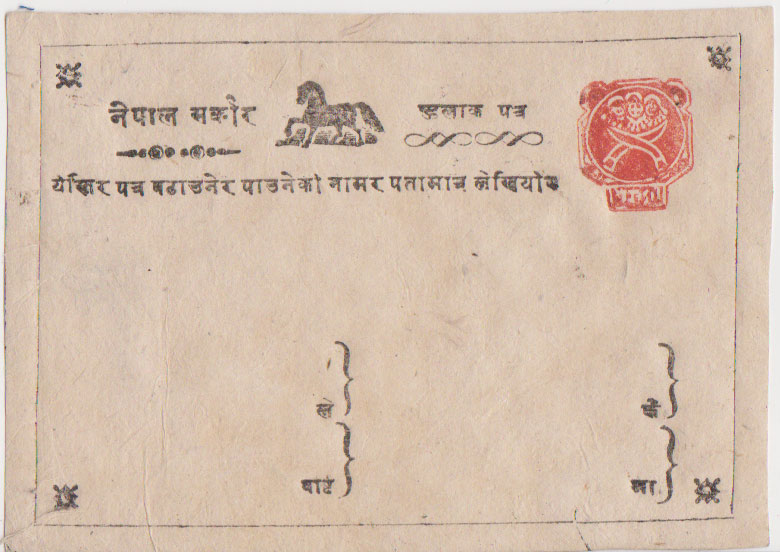 नेपाल सर्कार
हुलाक पत्र
येसतिर पत्र पठाउनेर पाउनेको नामर पतामात्र लेखियोस
ले
बाट
मा